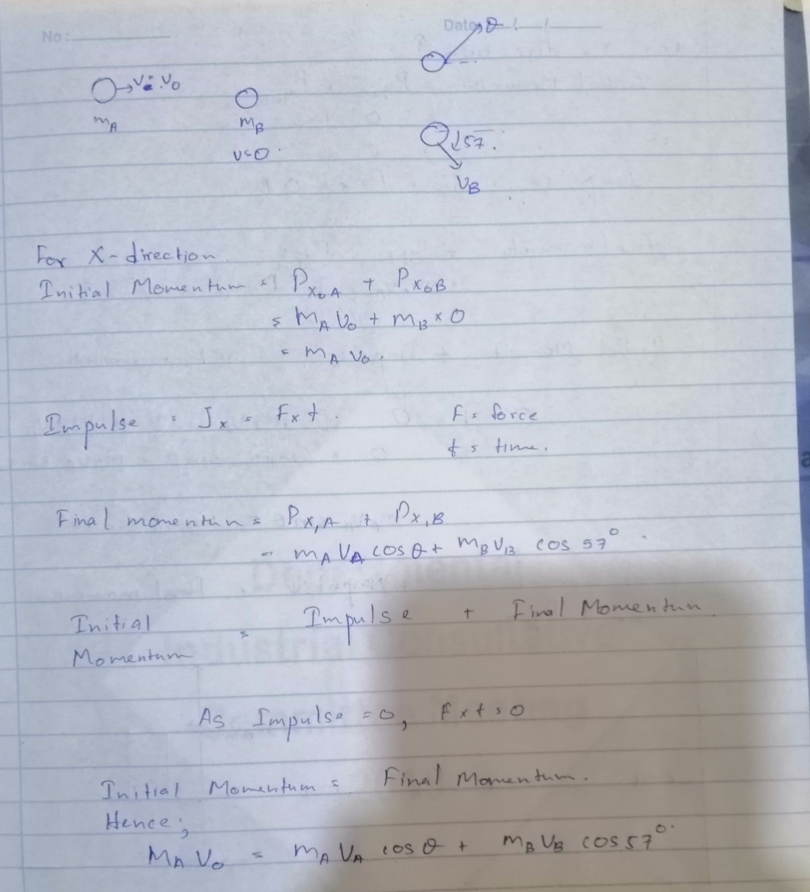 No:
Date
θ
V=V₀
m_A
m_B
v=0
57.
V_B
For X-direction.
Initial Momentum = P_x₀A + P_x₀B
= m_A V₀ + m_B × 0
= m_A V₀.
Impulse = J_x = F × t.
F = force
t = time.
Final momentum = P_x,A + P_x,B
= m_A V_A cos θ + m_B V_B cos 57°.
Initial
Momentum = Impulse + Final Momentum.
As Impulse = 0, F × t = 0
Initial Momentum = Final Momentum.
Hence;
M_A V₀ = m_A V_A cos θ + m_B V_B cos 57°.